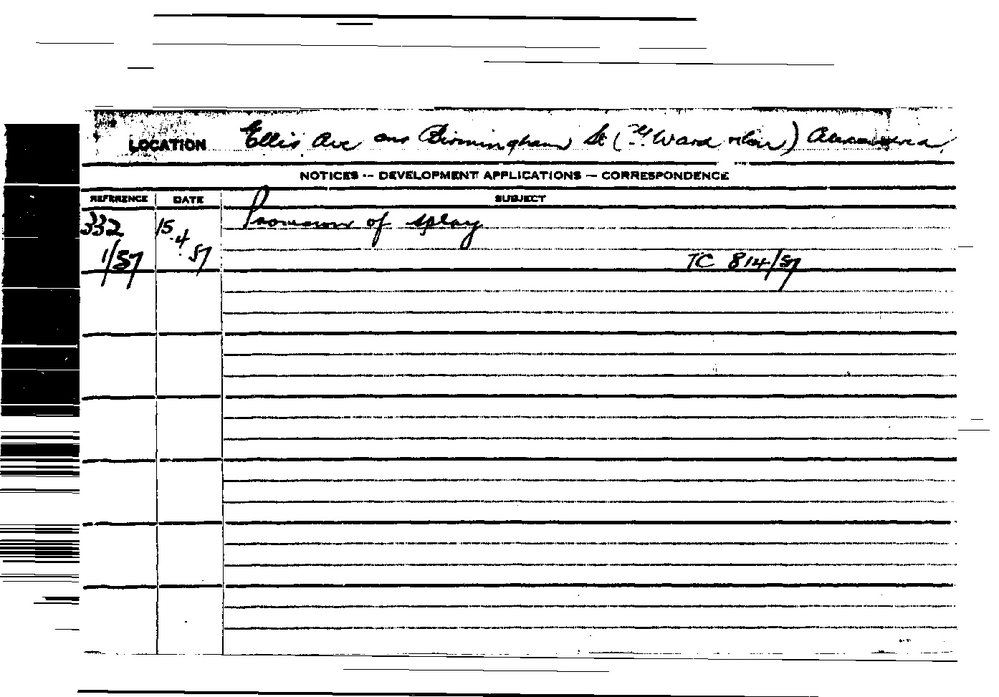 LOCATION Ellis Ave and Birmingham St ( Ward ) Alexandria
NOTICES -- DEVELOPMENT APPLICATIONS — CORRESPONDENCE
REFERENCE DATE SUBJECT
332 15.4 Provision of splay
1/57 .57 TC 814/57